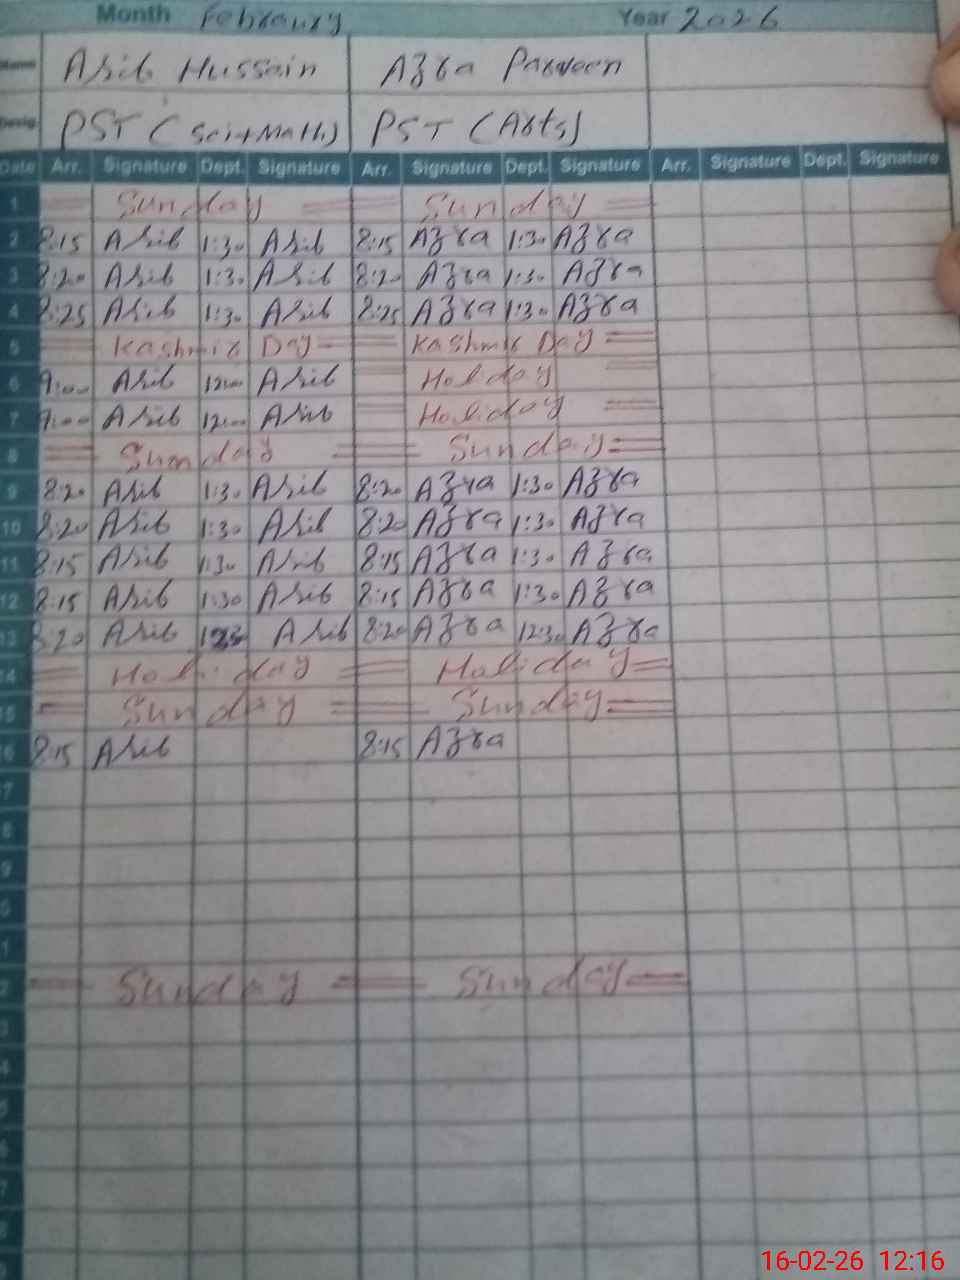 Month February Year 2026
Name Asib Hussain Azra Parveen
Desig. PST (Sci+Math) PST (Arts)
Date Arr. Signature Dept. Signature Arr. Signature Dept. Signature Arr. Signature Dept. Signature
1 Sunday Sunday
2 8:15 Asib 1:30 Asib 8:15 Azra 1:30 Azra
3 8:20 Asib 1:30 Asib 8:20 Azra 1:30 Azra
4 8:25 Asib 1:30 Asib 8:25 Azra 1:30 Azra
5 Kashmir Day Kashmir Day
6 9:00 Asib 12:00 Asib Holiday
7 9:00 Asib 12:00 Asib Holiday
8 Sunday Sunday
9 8:20 Asib 1:30 Asib 8:20 Azra 1:30 Azra
10 8:20 Asib 1:30 Asib 8:20 Azra 1:30 Azra
11 8:15 Asib 1:30 Asib 8:15 Azra 1:30 Azra
12 8:15 Asib 1:30 Asib 8:15 Azra 1:30 Azra
13 8:20 Asib 12:30 Asib 8:20 Azra 12:30 Azra
14 Holiday Holiday
15 Sunday Sunday
16 8:15 Asib 8:15 Azra
7
8
9
0
1
2 Sunday Sunday
3
4
5
6
7
8
16-02-26 12:16